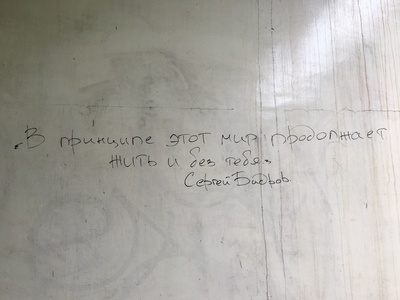 „В принципе этот мир продолжает
жить и без тебя"
Сергей Бодров